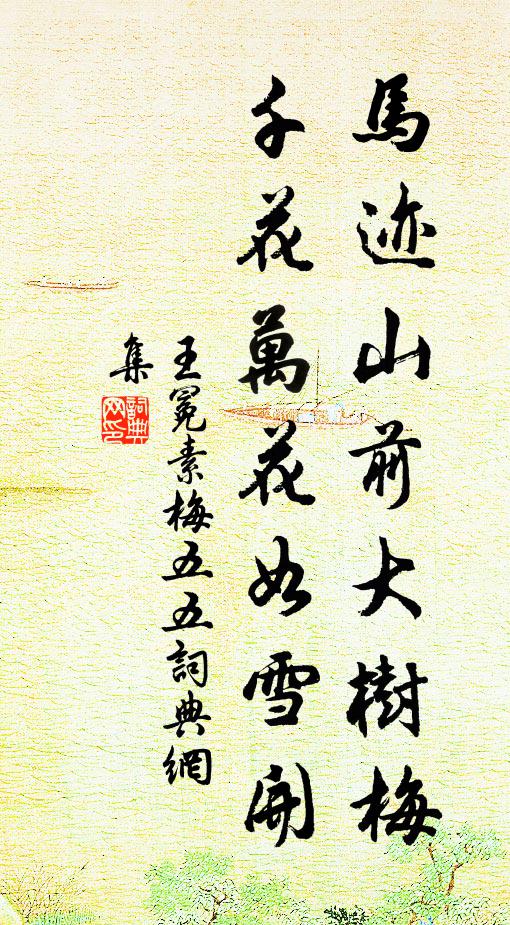 馬迹山前大樹梅
千花萬花如雪開
王冕素梅五五詞典網
集
詞典網印